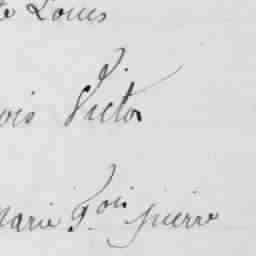 te Louis
ois Victor
Marie F.ois pierre